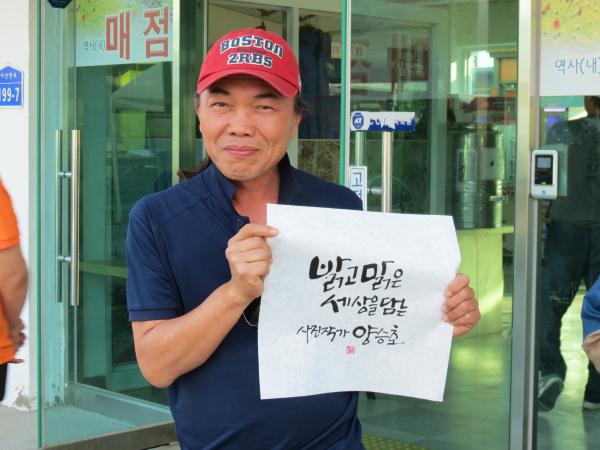 역사(내) 매점
199-7
BOSTON
2RBS
ADT
고
역사(내)
밝고 맑은
세상을 담는
사진작가 양승호